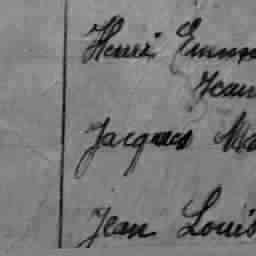 Henri Emm
Jean
Jacques Ma
Jean Louis